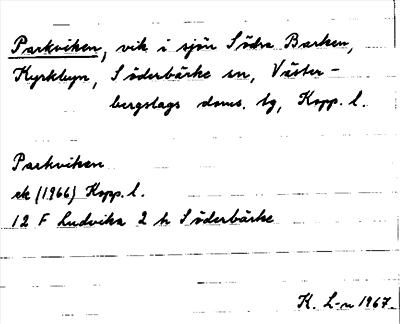 Parkviken, vik i sjön Södra Barken,
Kyrkbyn, Söderbärke sn, Väster-
bergslags doms. tg, Kopp. l.
Parkviken
ek (1966) Kopp. l.
12 F Ludvika 2 h Söderbärke
K. L-n 1967.